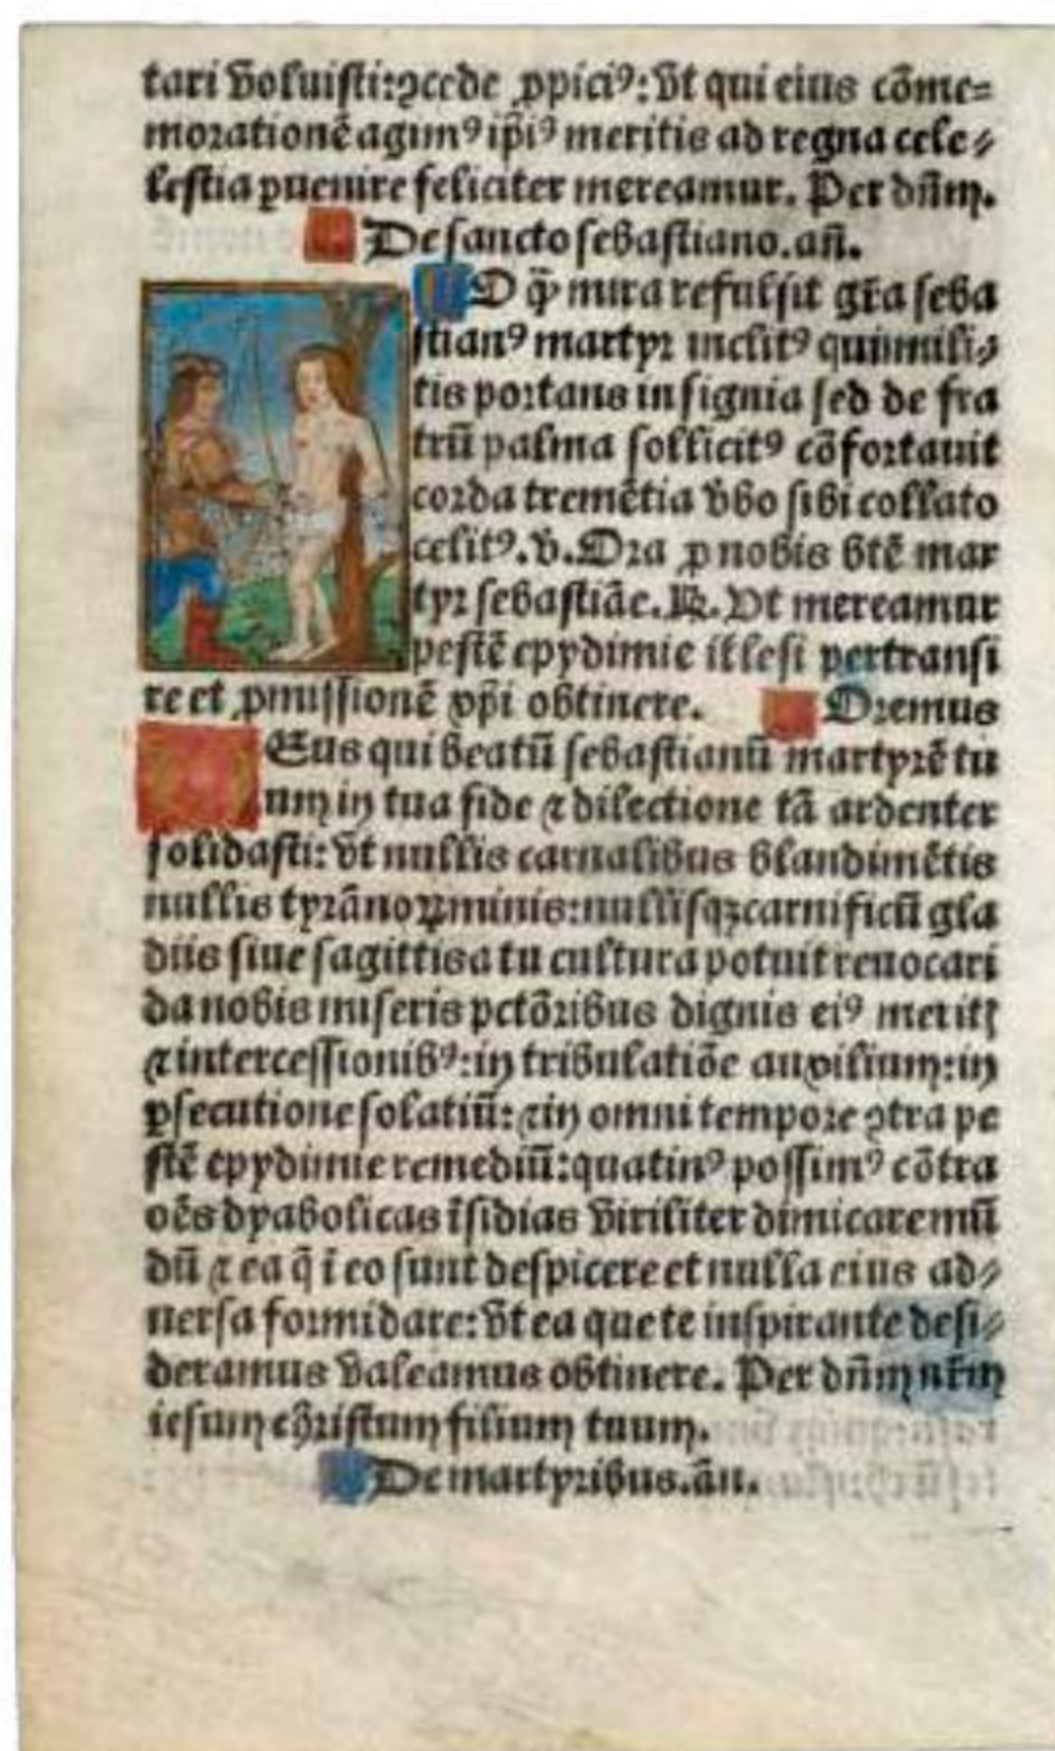 tari voluisti:ꝯcede ꝓpiciꝰ: vt qui eius cōme=
morationē agimꝰ ip̄iꝰ meritis ad regna cele⸗
lestia ꝑuenire feliciter mereamur. Per dn̄m.
De sancto sebastiano. an̄.
O q̄ꝫ mira refulsit gr̄a seba
stianꝰ martyr inclitꝰ qui mili⸗
tis portans insignia sed de fra
trū palma sollicitꝰ cōfortauit
corda tremētia v̄bo sibi collato
celitꝰ. v̄. Ora ꝓ nobis btē mar
tyr sebastiāe. ℟. Vt mereamur
pestē epydimie illesi pertransi
re et ꝓmissionē xp̄i obtinere. Oremus
Eus qui beatū sebastianū martyrē tu
um in tua fide ⁊ dilectione tā ardenter
solidasti: vt nullis carnalibus blandimētis
nullis tyrānoꝝ minis: nullisqꝫ carnificū gla
diis siue sagittis a tu cultura potuit reuocari
da nobis miseris pctōribus dignis eiꝰ meritꝭ
⁊ intercessionibꝰ: in tribulatiōe auxilium: in
ꝑsecutione solatiū: ⁊ in omni tempore ꝯtra pe
stē epydimie remediū: quatinꝰ possimꝰ cōtra
oēs dyabolicas īsidias viriliter dimicare mū
dū ⁊ ea q̄ ī eo sunt despicere et nulla eius ad⸗
uersa formidare: vt ea que te inspirante desi⸗
deramus valeamus obtinere. Per dn̄m nr̄m
iesum christum filium tuum.
De martyribus. ān.